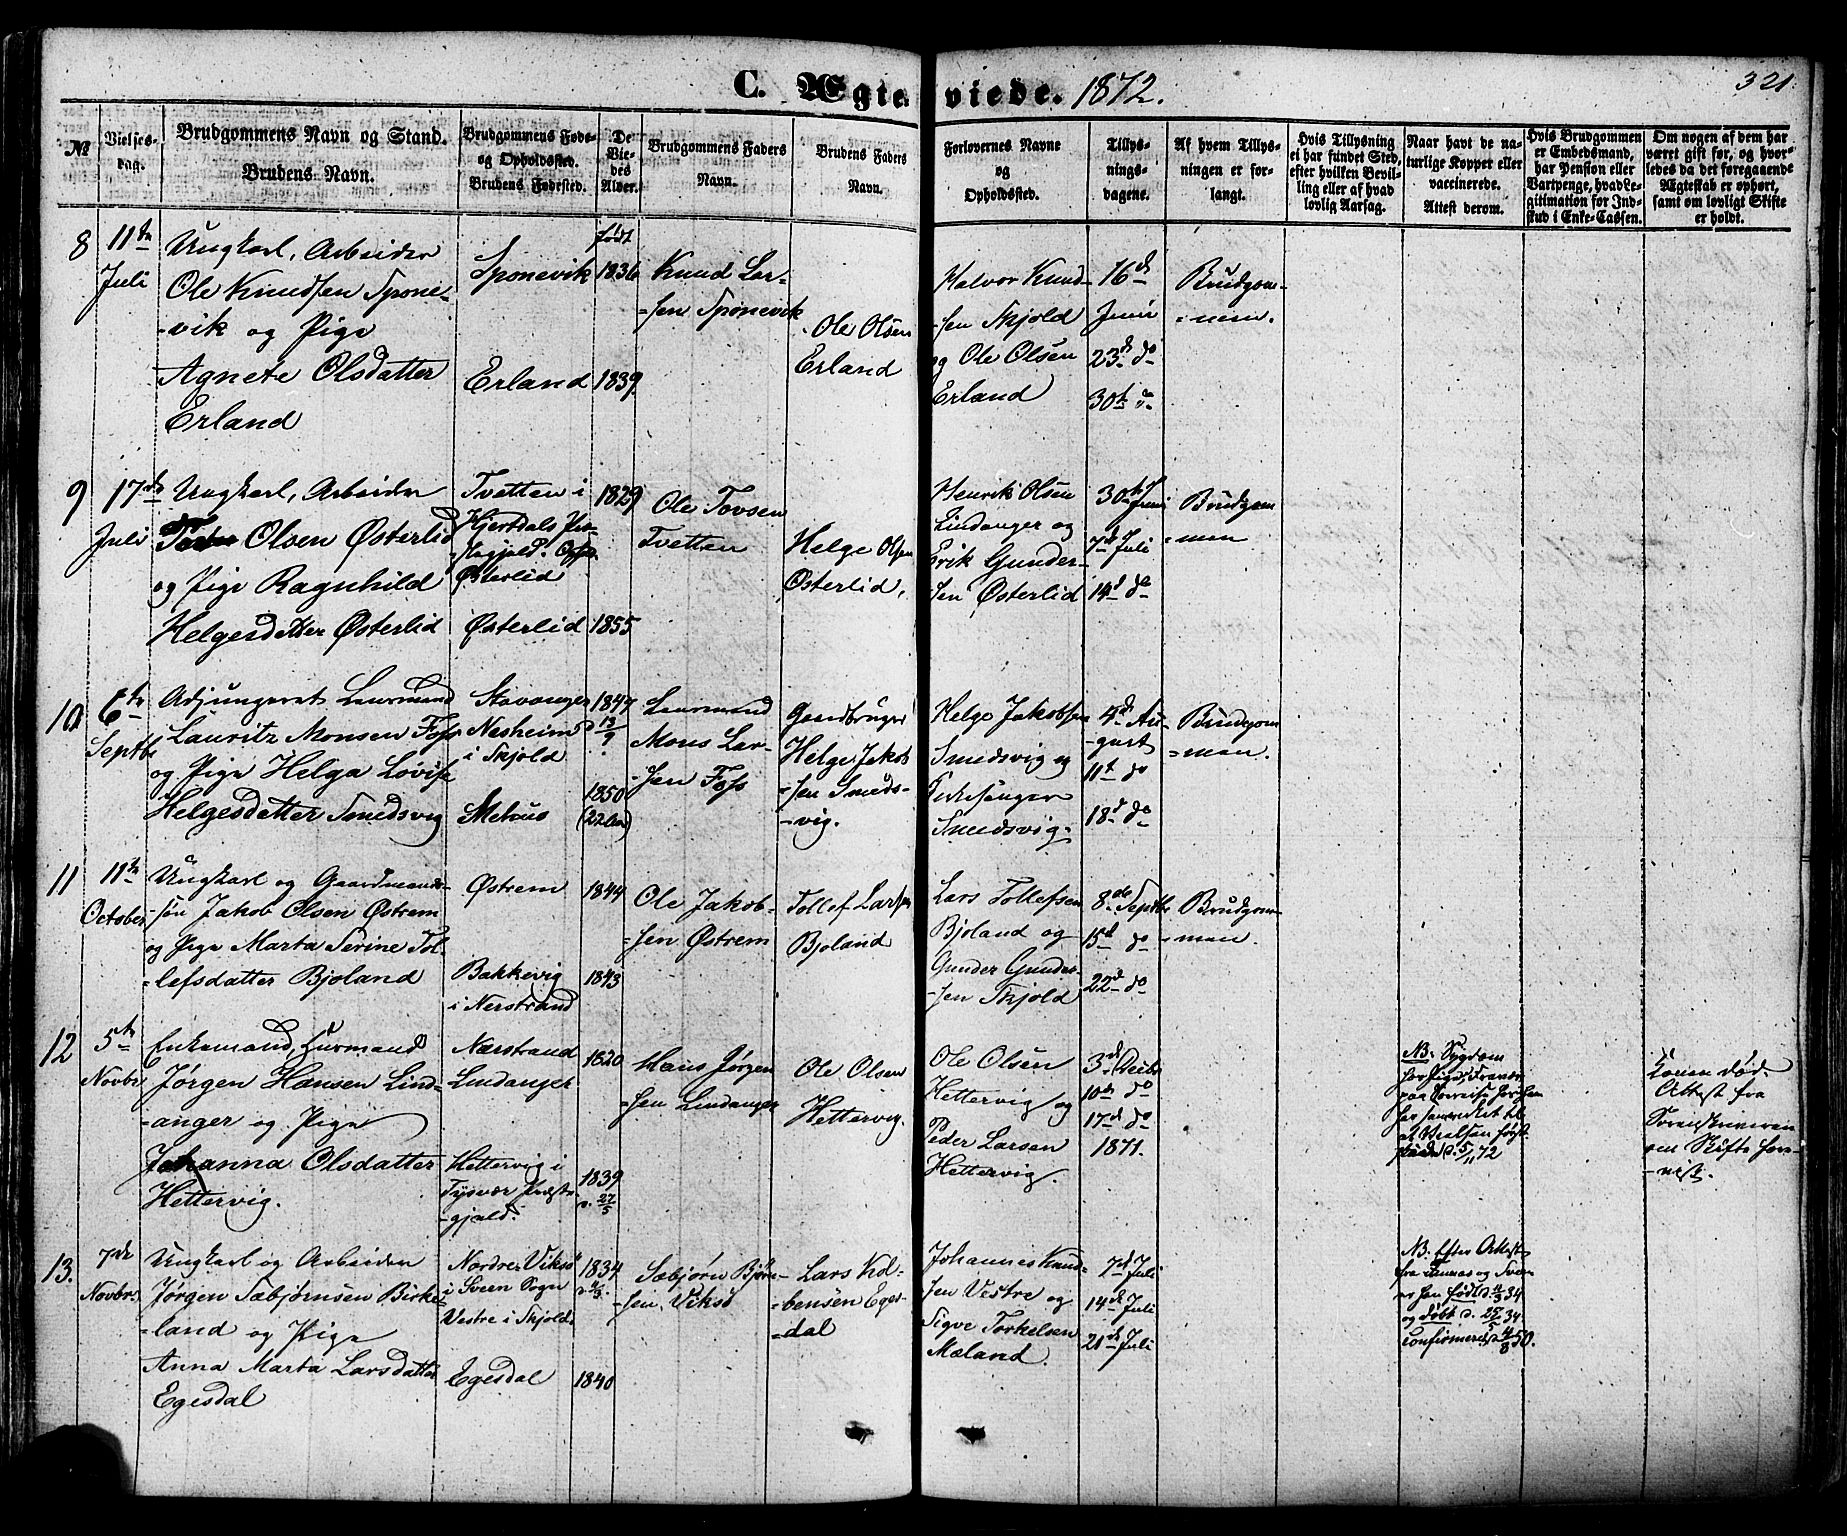 321.
C. Ægteviede. 1872.
№
Vielses-
dag.
Brudgommens Navn og Stand.
Brudens Navn.
Brudgommens Føde-
og Opholdssted.
Brudens Fødested.
De
Vie-
des
Alder.
Brudgommens Faders
Navn.
Brudens Faders
Navn.
Forlovernes Navne
og
Opholdssted.
Tillys-
nings-
dagene.
Af hvem Tillys-
ningen er for-
langt.
Hvis Tillysning
ei har fundet Sted,
efter hvilken Bevil-
ling eller af hvad
lovlig Aarsag.
Naar havt de na-
turlige Kopper eller
vaccinerede.
Attest derom.
Hvis Brudgommen
er Embedsmand,
har Pension eller
Vartpenge, hvad Le-
gitimation for Ind-
skud i Enke-Cassen.
Om nogen af dem har
været gift før, og hvor-
ledes da det foregaaende
Ægteskab er ophørt,
samt om lovligt Skifte
er holdt.
8
11te
Juli
Ungkarl, Arbeider
Ole Knudsen Spone-
-vik og Pige
Agnete Olsdatter
Erland
Sponevik
Erland
født
1836
1839
Knud Lar-
-sen Sponevik
Ole Olsen
Erland
Halvor Knud-
-sen Skjold
og Ole Olsen
Erland
16d
Juni
23d do
30te do
Brudgom-
-men.
9
17de
Juli
Ungkarl, Arbeider
Olsen Østerlid
og Pige Ragnhild
Helgesdatter Østerlid
Tvetten i
Hjertdals Præ-
-stegjeld.
Østerlid
Østerlid
1829
1855
Ole Tovsen
Tvetten
Helge Olsen
Østerlid,
Henrik Olsen
Lindanger og
Erik Gunder-
sen Østerlid
30te Juni
7d Juli
14d do
Brudgom
-men
10
6te
Septbr
Adjungeret Lensmand
Lauritz Monsen Foss
og Pige Helga Lovise
Helgesdatter Smedsvig
Stavanger
Nesheim
i Skjold
Mehus
1847
13/9
1850
(22 Aar)
Lensmand
Mons Lar-
-sen Foss
Gaardbruger
Helge Jakob
-sen Smeds-
-vig.
Helge Jakobsen
Smedsvig og
Kirkesanger
Smedsvig.
4d Au-
-gust
11te do
18d do
Brudgom
-men.
11
11te
October
Ungkarl og Gaardmands-
-søn Jakob Olsen Østrem
og Pige Marta Serine Tol-
-lefsdatter Bjoland
Østrem
Bakkevig
i Nerstrand
1844
1843
Ole Jakob-
-sen Østrem
Tollef Larsen
Bjoland
Lars Tollefsen
Bjoland og
Gunder Gunder-
-sen Skjold
8de Septbr
15d do
22d do
Brudgom-
-men.
12
5te
Novbr
Enkemand, Huusmand
Jørgen Hansen Lind-
-anger og Pige
Johanna Olsdatter
Hettervig.
Nærstrand
Lindanger
Hettervig i
Tysvær Præste-
-gjeld.
1820
1839
d. 27/5
Hans Jørgen
-sen Lindanger
Ole Olsen
Hettervig.
Ole Olsen
Hettervig og
Peder Larsen
Hettervig.
3d Decbr
10de do
17d do
1871.
NB. Sygdom
hos Pigen,
at Vielsen først
d. 5/11 72
Konen død.
Attest fra
Sorenskriveren
om Skifte fore-
-vist.
13.
7de
Novbr.
Ungkarl og Arbeider
Jørgen Sæbjørnsen Birke-
-land og Pige
Anna Marta Larsdatter
Egesdal
Nordre Viksø
i Sveen Sogn
Vestre i Skjold.
Egesdal
1834
d. 11/3
1840
Sæbjørn Bjørn-
-sen Viksø
Lars Kol-
-bensen Eges-
-dal
Johannes Knud-
sen Vestre og
Sigve Torkelsen
Mæland.
7d Juli
14d Juli
21d Juli
NB. Efter Attest
fra Finnaas og Sveen
er han født d. 11/3 34
og døbt d. 25/5 34
confirmeret d. 4/8 50.